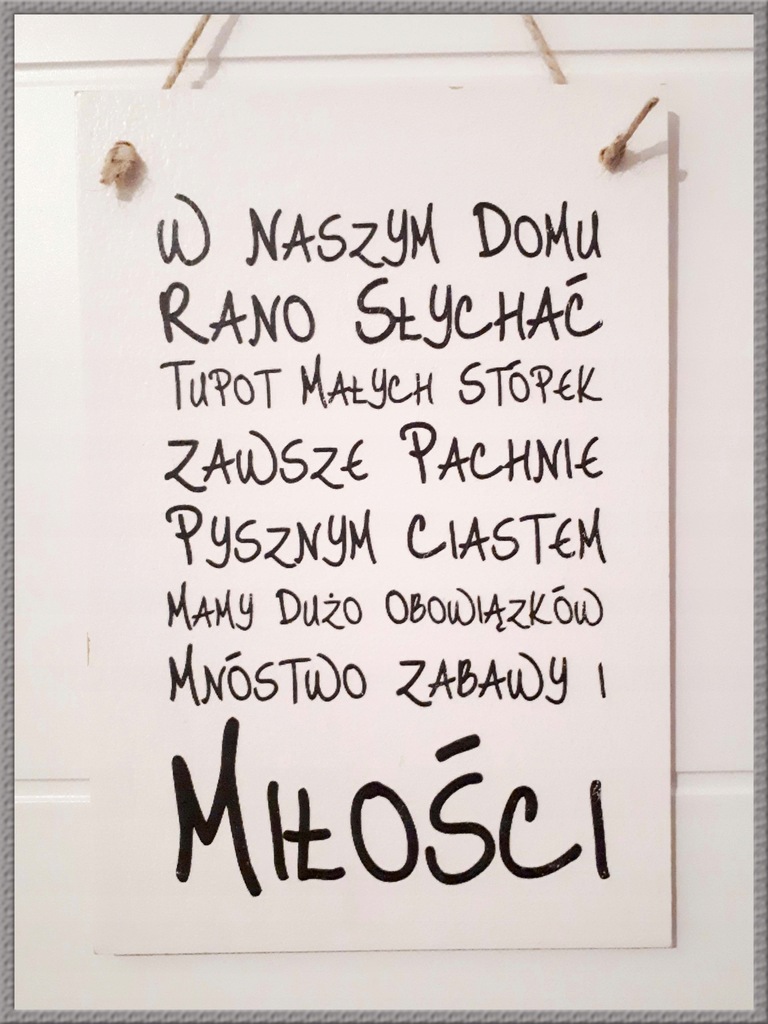 W NASZYM DOMU
RANO SŁYCHAĆ
TUPOT MAŁYCH STÓPEK
ZAWSZE PACHNIE
PYSZNYM CIASTEM
MAMY DUŻO OBOWIĄZKÓW
MNÓSTWO ZABAWY I
MIŁOŚCI